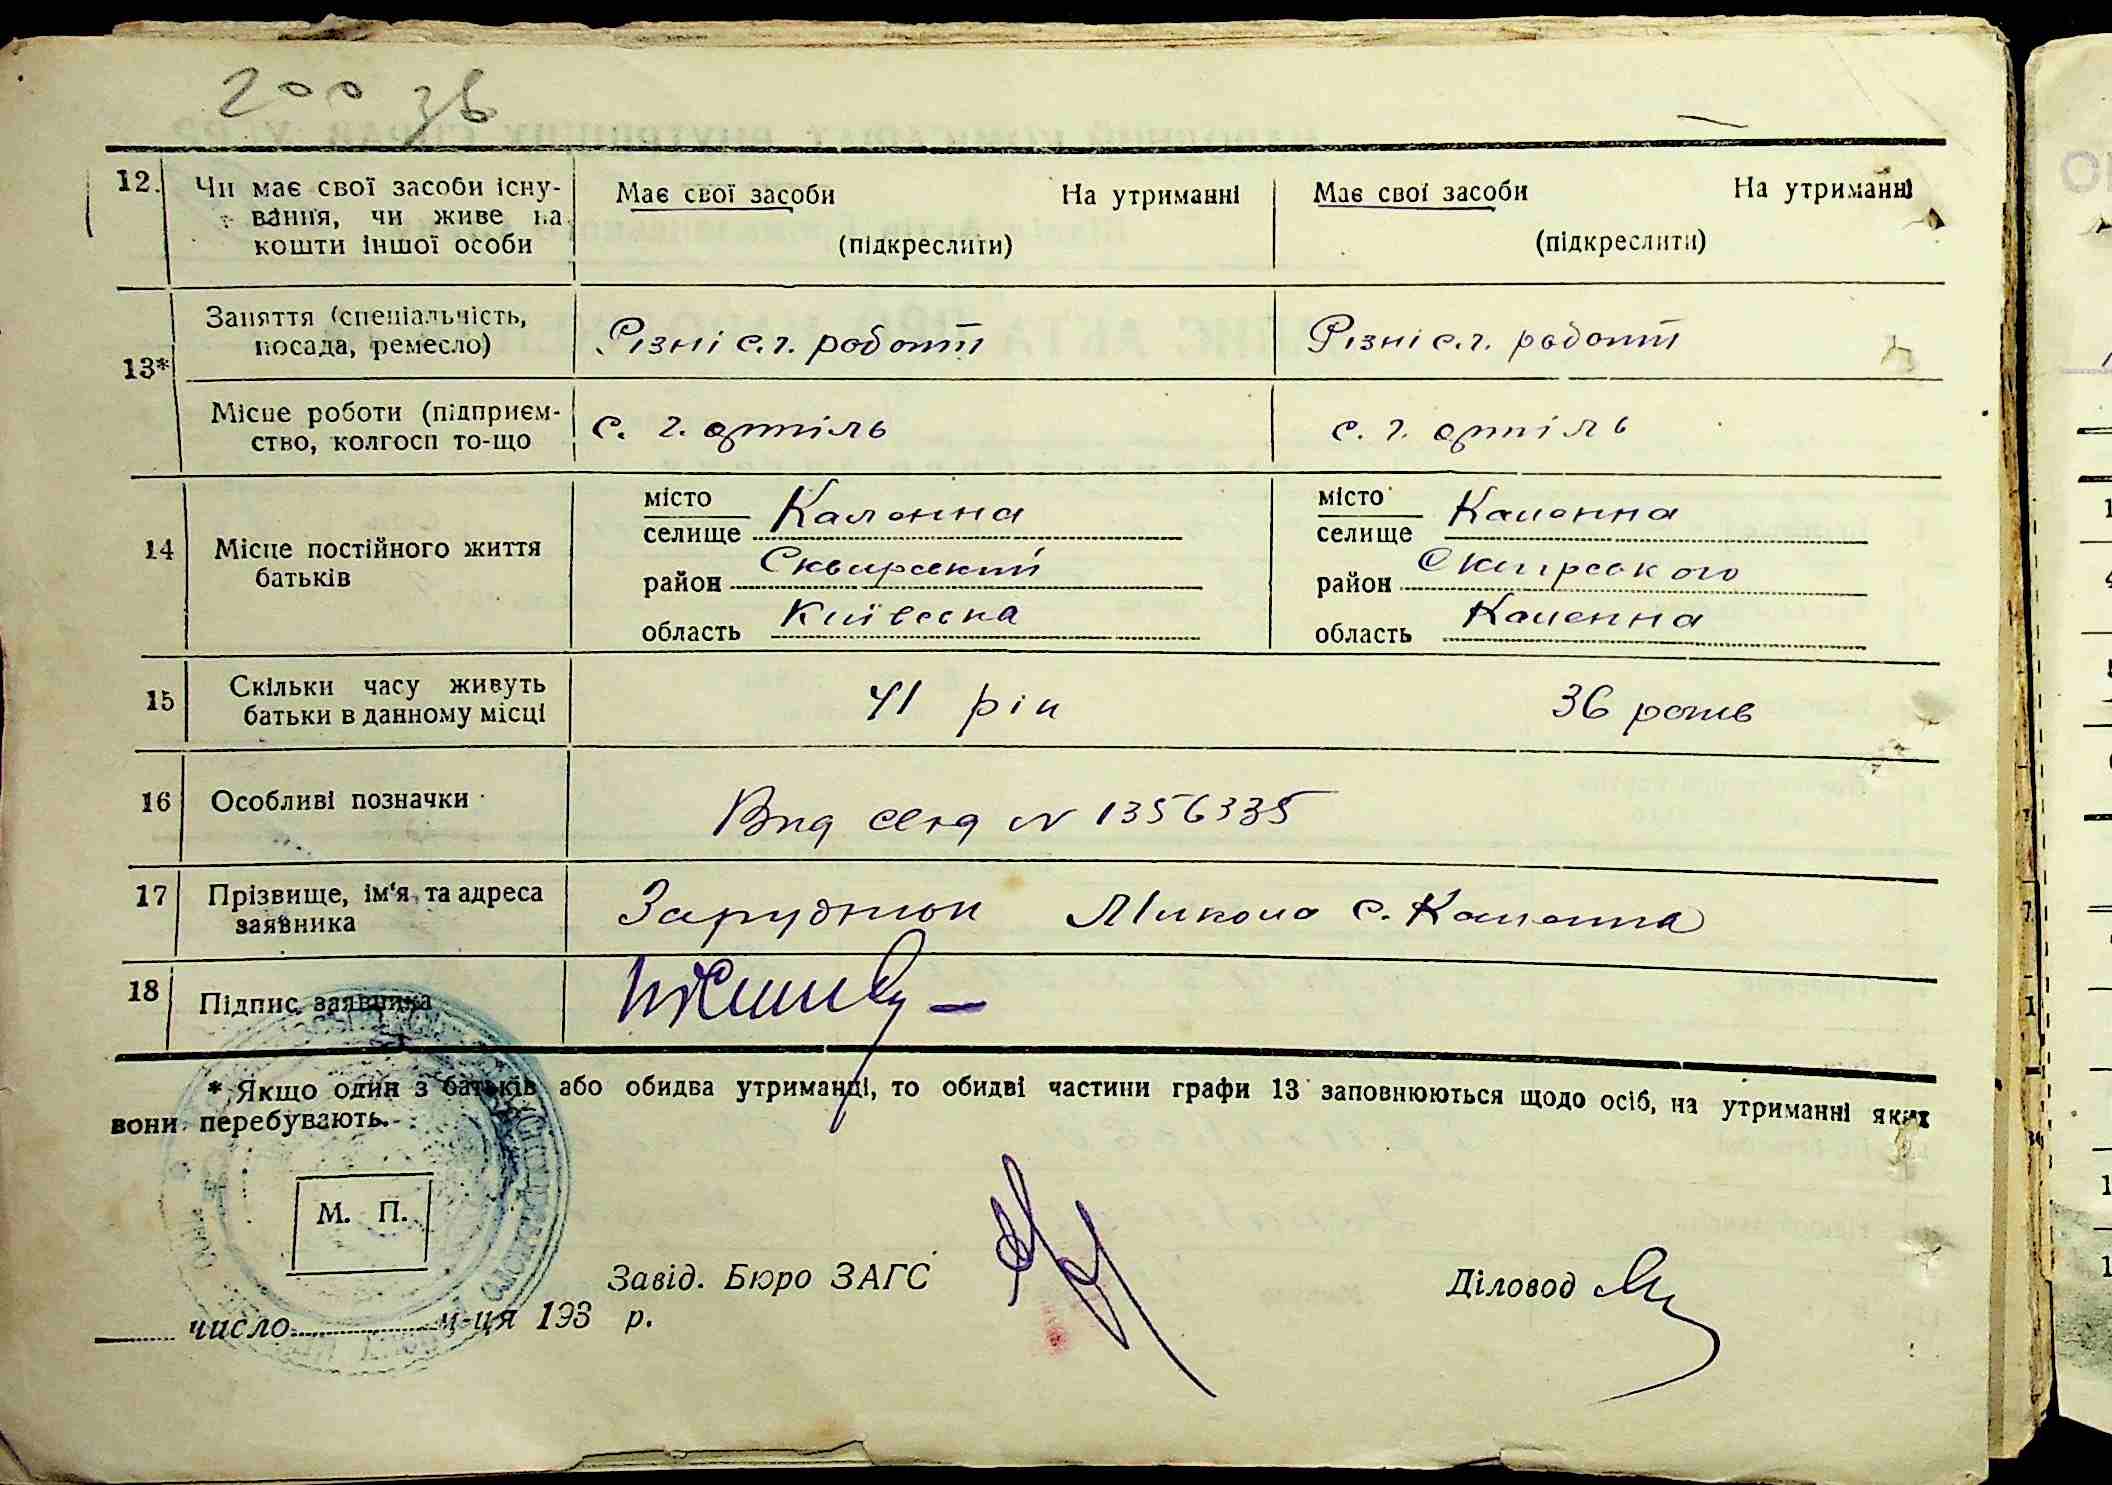 200 зв
12. Чи має свої засоби існу-
вання, чи живе на
кошти іншої особи
Має свої засоби На утриманні
(підкреслити)
Має свої засоби На утриманні
(підкреслити)
13*
Заняття (спеціальність,
посада, ремесло)
Різні с.г. роботи
Різні с.г. роботи
Місце роботи (підприєм-
ство, колгосп то-що
с. г. артіль
с. г. артіль
14 Місце постійного життя
батьків
місто
селище Каленна
район Сквирський
область Київська
місто
селище Каленна
район Сквирського
область Каленна
15 Скільки часу живуть
батьки в данному місці
41 рік
36 років
16 Особливі позначки
Вид свід N 1356335
17 Прізвище, ім'я, та адреса
заявника
Заруднюк Микола с. Каленна
18 Підпис заявника
* Якщо один з батьків або обидва утриманці, то обидві частини графи 13 заповнюються щодо осіб, на утриманні яких
вони перебувають.
М. П.
Завід. Бюро ЗАГС
Діловод
число м-ця 193 р.